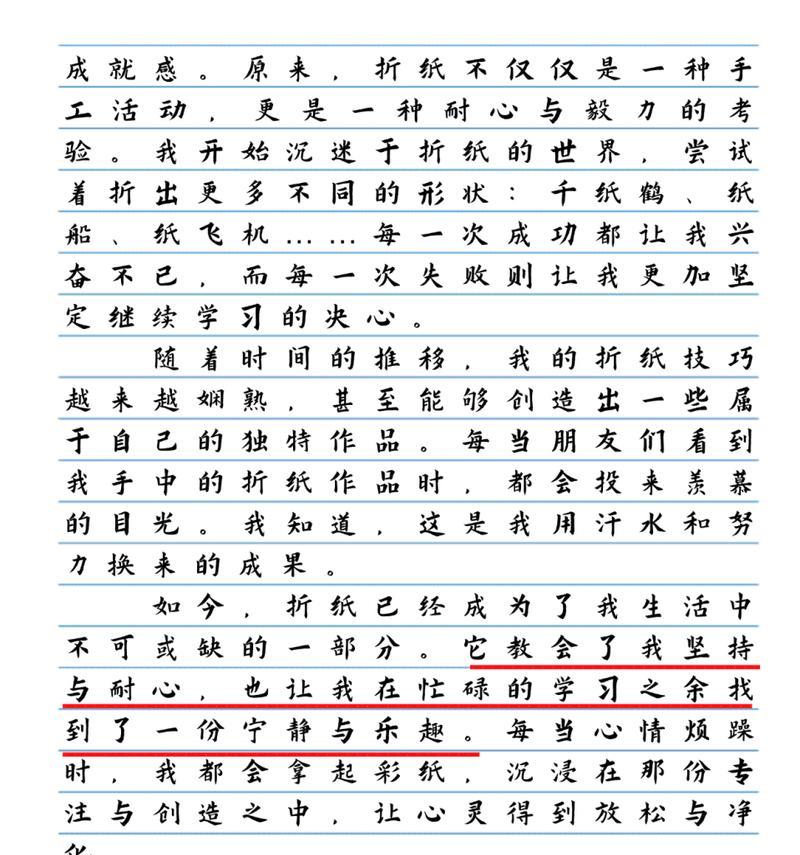 成就感。原来，折纸不仅仅是一种手
工活动，更是一种耐心与毅力的考
验。我开始沉迷于折纸的世界，尝试
着折出更多不同的形状：千纸鹤、纸
船、纸飞机……每一次成功都让我兴
奋不已，而每一次失败则让我更加坚
定继续学习的决心。
随着时间的推移，我的折纸技巧
越来越娴熟，甚至能够创造出一些属
于自己的独特作品。每当朋友们看到
我手中的折纸作品时，都会投来羡慕
的目光。我知道，这是我用汗水和努
力换来的成果。
如今，折纸已经成为了我生活中
不可或缺的一部分。它教会了我坚持
与耐心，也让我在忙碌的学习之余找
到了一份宁静与乐趣。每当心情烦躁
时，我都会拿起彩纸，沉浸在那份专
注与创造之中，让心灵得到放松与净